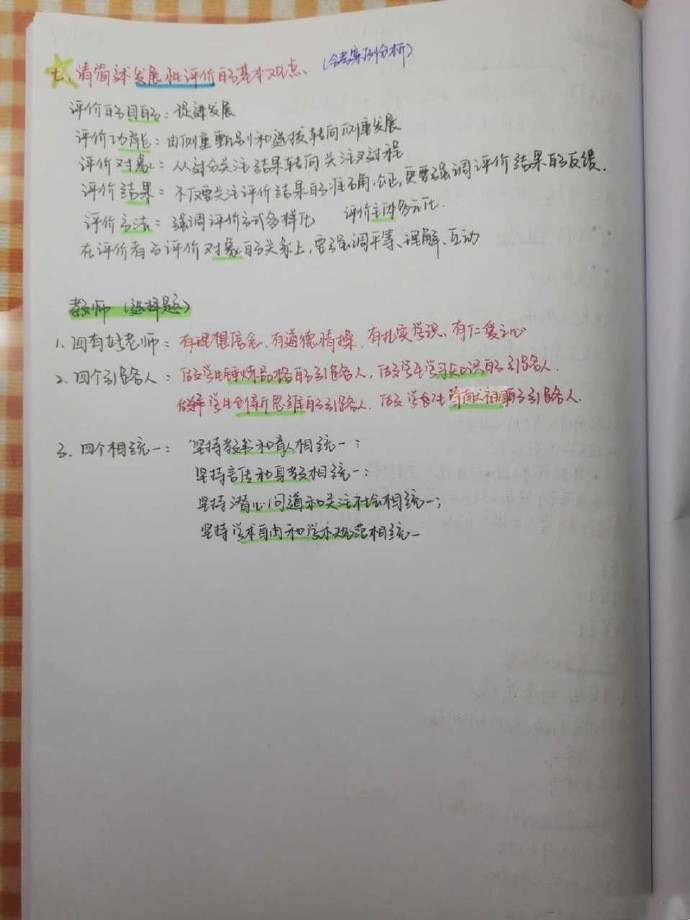 七、请简述发展性评价的基本观点、(会考案例分析)
评价的目的：促进发展
评价功能：由侧重甄别和选拔转向侧重发展
评价对象：从过分关注结果转向关注对过程
评价结果：不仅要关注评价结果的准确、公正,更要强调评价结果的反馈.
评价方法：强调评价方式多样化 评价主体多元化.
在评价者与评价对象的关系上,要强调平等、理解、互动
教师(选择题)
1、四有好老师：有理想信念、有道德情操、有扎实学识、有仁爱之心
2、四个引路人：做学生锤炼品格的引路人,做学生学习知识的引路人
做学生创新思维的引路人、做学生奉献祖国的引路人.
3、四个相统一：坚持教书和育人相统一；
坚持言传和身教相统一；
坚持潜心问道和关注社会相统一；
坚持学术自由和学术规范相统一